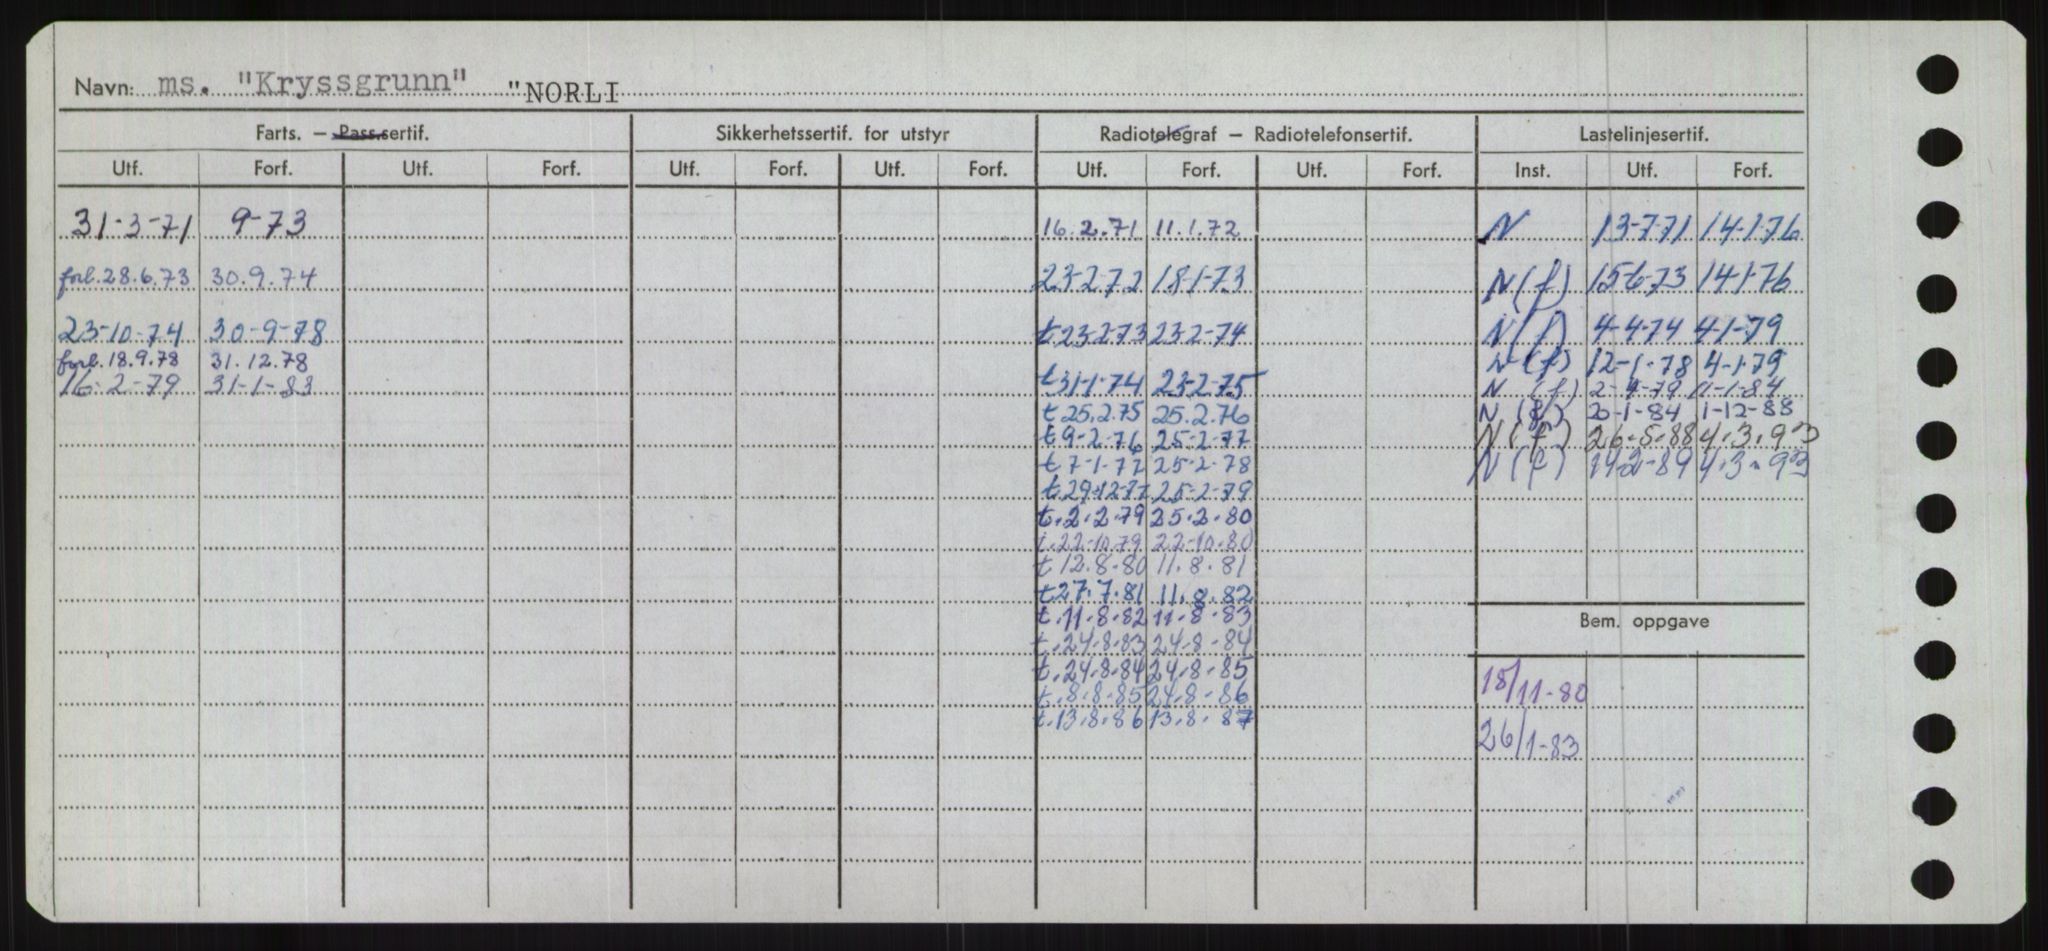 Navn: ms. "Kryssgrunn" "NORLI
Farts. — Pass.sertif. Sikkerhetssertif. for utstyr Radiotelegraf — Radiotelefonsertif. Lastelinjesertif.
Utf. Forf. Utf. Forf. Utf. Forf. Utf. Forf. Utf. Forf. Utf. Forf. Inst. Utf. Forf.
31-3-71 9-73 16.2.71 11.1.72 N 13-7-71 14-1-76
forl.28.6.73 30.9.74 23-2-72 18-1-73 N(f) 15-6-73 14-1-76
23-10-74 30-9-78 t.23-2-73 23-2-74 N(f) 4-4-74 4-1-79
forl.18.9.78 31.12.78 N(f) 12-1-78 4-1-79
16-2-79 31-1-83 t31-1-74 23-2-75 N (f) 2-4-79 11-1-84
t25.2.75 25.2.76 N (f) 20-1-84 1-12-88
t9-2-76 25-2-77 N(f) 26-5-88 4.3.93
t7-1-77 25-2-78 N(f) 14-2-89 4.3.93
t.29-12-77 25-2-79
t.2.2.79 25.2.80
t.22-10.79 22-10-80
t12.8.80 11.8.81
t27.7.81 11.8.82
t.11.8.82 11.8.83
Bem. oppgave
t.24.8.83 24.8.84
t.24.8.84 24.8.85
18/11-80
t.8.8.85 24.8.86
t.13.8.86 13.8.87
26/1-83